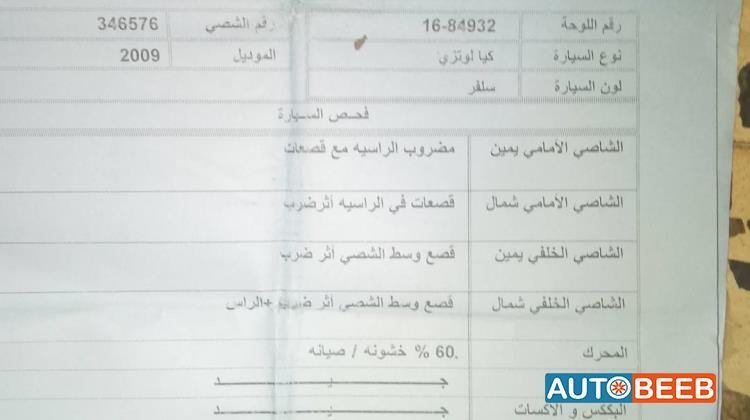 رقم اللوحة 16-84932 رقم الشصي 346576
نوع السيارة كيا لوتزي الموديل 2009
لون السيارة سلفر
فحص السيارة
الشاصي الأمامي يمين مضروب الراسيه مع قصعات
الشاصي الأمامي شمال قصعات في الراسيه أثرضرب
الشاصي الخلفي يمين قصع وسط الشصي أثر ضرب
الشاصي الخلفي شمال قصع وسط الشصي أثر ضرب +الراس
المحرك 60% خشونه / صيانه.
جــــيــــد
البكس و الاكسات جــــيــــد
AUTOBEEB